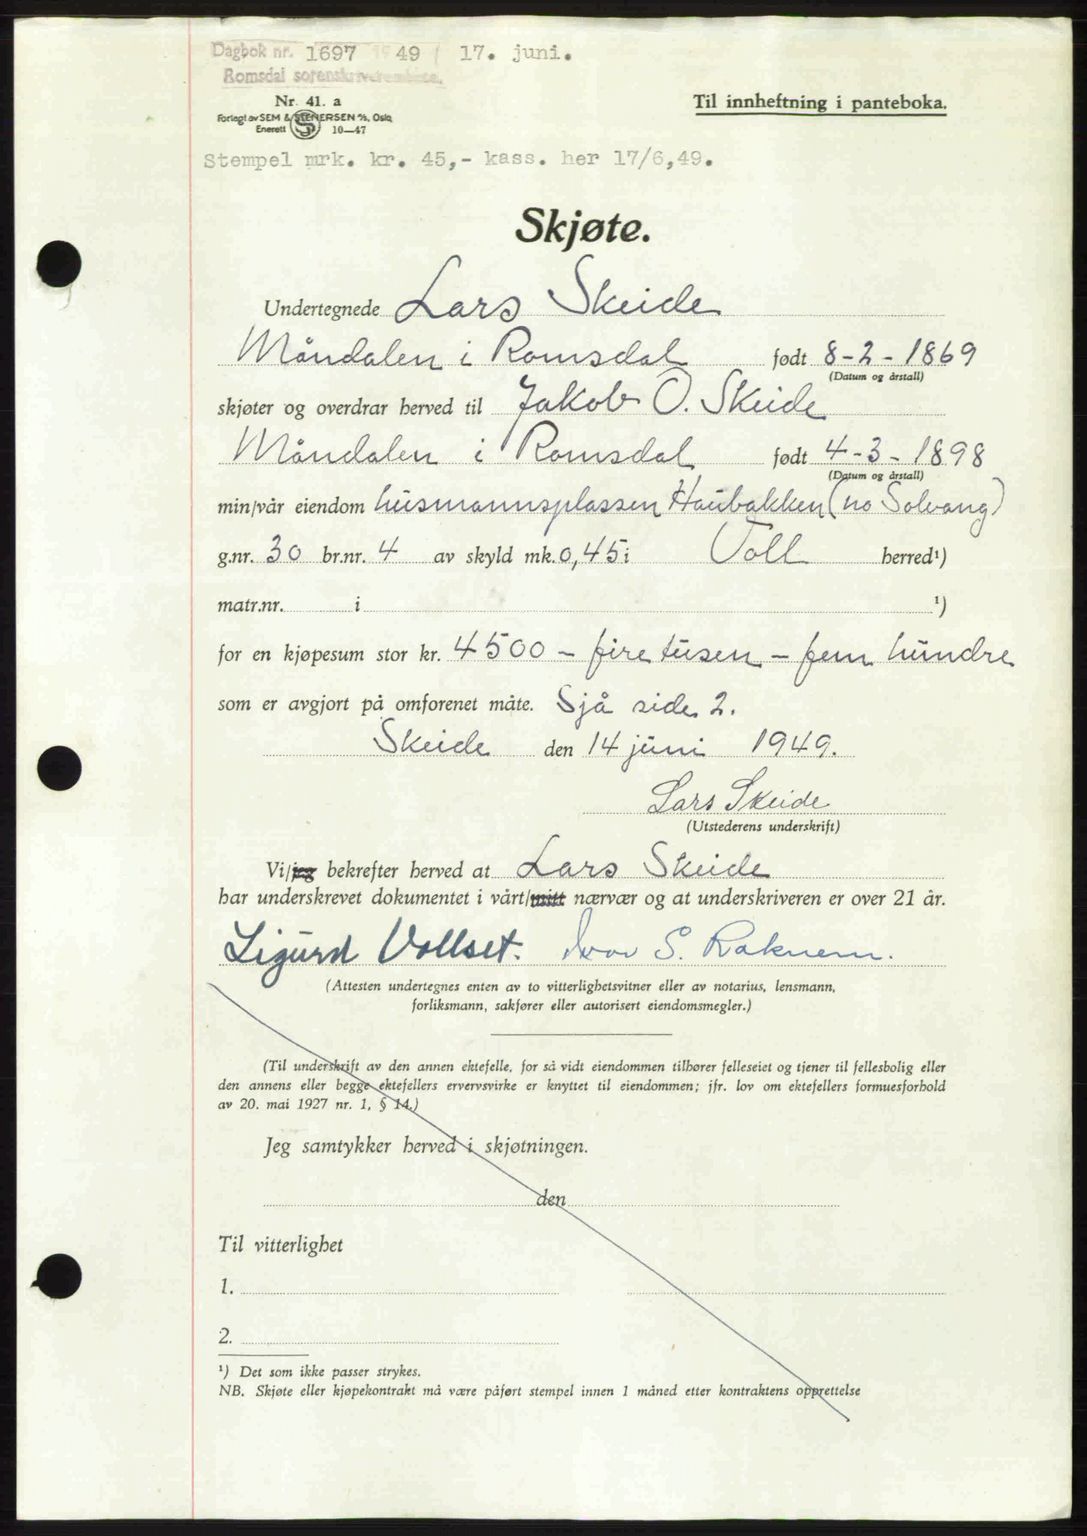 Dagbok nr. 1697 1949 / 17. juni.
Romsdal sorenskriverembete.
Nr. 41. a
Til innheftning i panteboka.
Forlagt av SEM & STENERSEN A/S, Oslo
Enerett 10—47
Stempel mrk. kr. 45,- kass. her 17/6,49.
Skjøte.
Undertegnede Lars Skeide
Måndalen i Romsdal født 8-2-1869
(Datum og årstall)
skjøter og overdrar herved til Jakob O. Skeide
Måndalen i Romsdal født 4-3-1898
(Datum og årstall)
min/vår eiendom husmannsplassen Haubakken (no Solvang)
g.nr. 30 br.nr. 4 av skyld mk. 0,45 i Voll herred¹)
matr.nr. i ¹)
for en kjøpesum stor kr. 4500 - fire tusen - fem hundre
som er avgjort på omforenet måte. Sjå side 2.
Skeide den 14 juni 1949.
Lars Skeide
(Utstederens underskrift)
Vi/jeg bekrefter herved at Lars Skeide
har underskrevet dokumentet i vårt/mitt nærvær og at underskriveren er over 21 år.
Sigurd Vollset. Ivar S. Raknem.
(Attesten undertegnes enten av to vitterlighetsvitner eller av notarius, lensmann,
forliksmann, sakfører eller autorisert eiendomsmegler.)
(Til underskrift av den annen ektefelle, for så vidt eiendommen tilhører felleseiet og tjener til fellesbolig eller
den annens eller begge ektefellers ervervsvirke er knyttet til eiendommen; jfr. lov om ektefellers formuesforhold
av 20. mai 1927 nr. 1, § 14.)
Jeg samtykker herved i skjøtningen.
den
Til vitterlighet
1.
2.
¹) Det som ikke passer strykes.
NB. Skjøte eller kjøpekontrakt må være påført stempel innen 1 måned etter kontraktens opprettelse